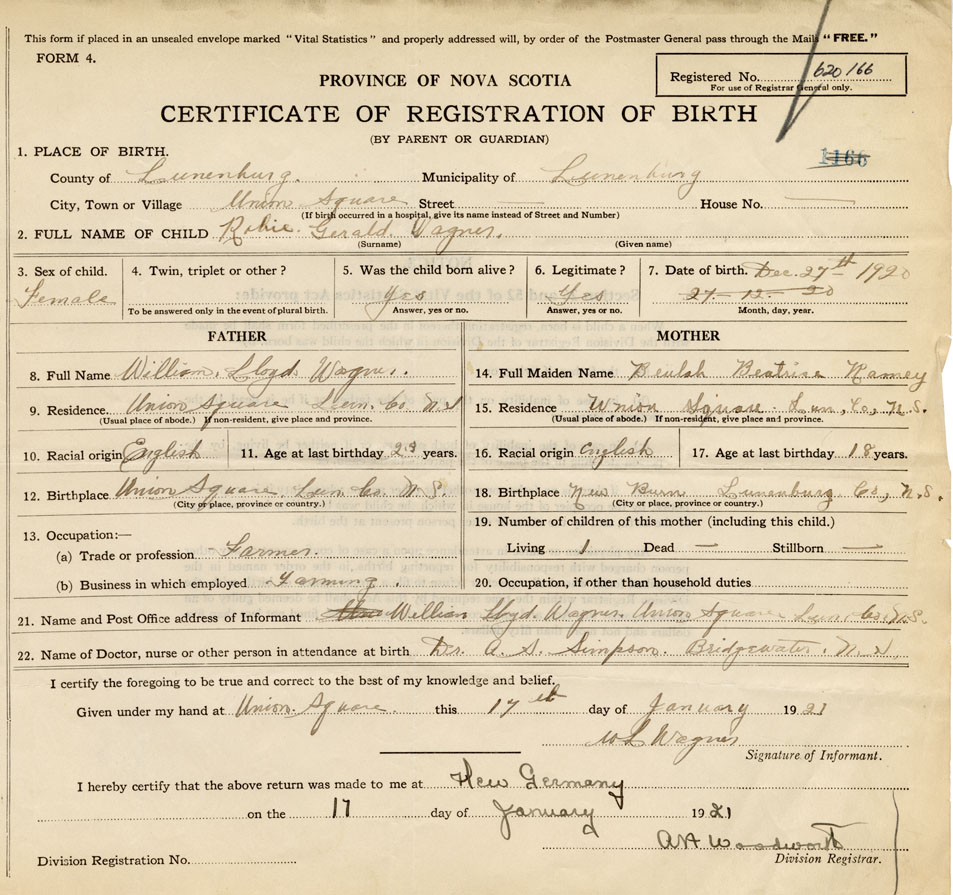 This form if placed in an unsealed envelope marked "Vital Statistics" and properly addressed will, by order of the Postmaster General pass through the Mails "FREE."
FORM 4.
Registered No. 620166
For use of Registrar General only.
PROVINCE OF NOVA SCOTIA
CERTIFICATE OF REGISTRATION OF BIRTH
(BY PARENT OR GUARDIAN)
1166
1. PLACE OF BIRTH.
County of Lunenburg. Municipality of Lunenburg
City, Town or Village Union Square Street — House No. —
(If birth occurred in a hospital, give its name instead of Street and Number)
2. FULL NAME OF CHILD Robie Gerald Wagner.
(Surname) (Given name)
3. Sex of child. 4. Twin, triplet or other? 5. Was the child born alive? 6. Legitimate? 7. Date of birth. Dec. 27th 1920
Female Yes Yes 27-12-20
To be answered only in the event of plural birth. Answer, yes or no. Answer, yes or no. Month, day, year.
FATHER MOTHER
8. Full Name William Lloyd Wagner. 14. Full Maiden Name Beulah Beatrice Ramey
9. Residence. Union Square Lun. Co N.S 15. Residence Union Square Lun. Co, N.S.
(Usual place of abode.) If non-resident, give place and province. (Usual place of abode.) If non-resident, give place and province.
10. Racial origin English 11. Age at last birthday 23 years. 16. Racial origin English 17. Age at last birthday 18 years.
12. Birthplace Union Square, Lun Co N. S. 18. Birthplace New Burn Lunenburg Co, N.S.
(City or place, province or country.) (City or place, province or country.)
13. Occupation:— 19. Number of children of this mother (including this child.)
(a) Trade or profession Farmer. Living 1 Dead — Stillborn —
(b) Business in which employed Farming 20. Occupation, if other than household duties
21. Name and Post Office address of Informant William Lloyd Wagner Union Square Lun. Co. N.S.
22. Name of Doctor, nurse or other person in attendance at birth Dr. A. S. Simpson. Bridgewater. N. S
I certify the foregoing to be true and correct to the best of my knowledge and belief.
Given under my hand at Union Square. this 17th day of January 1921
W L Wagner
Signature of Informant.
I hereby certify that the above return was made to me at New Germany
on the 17 day of January 1921
Woodworth
Division Registration No. Division Registrar.